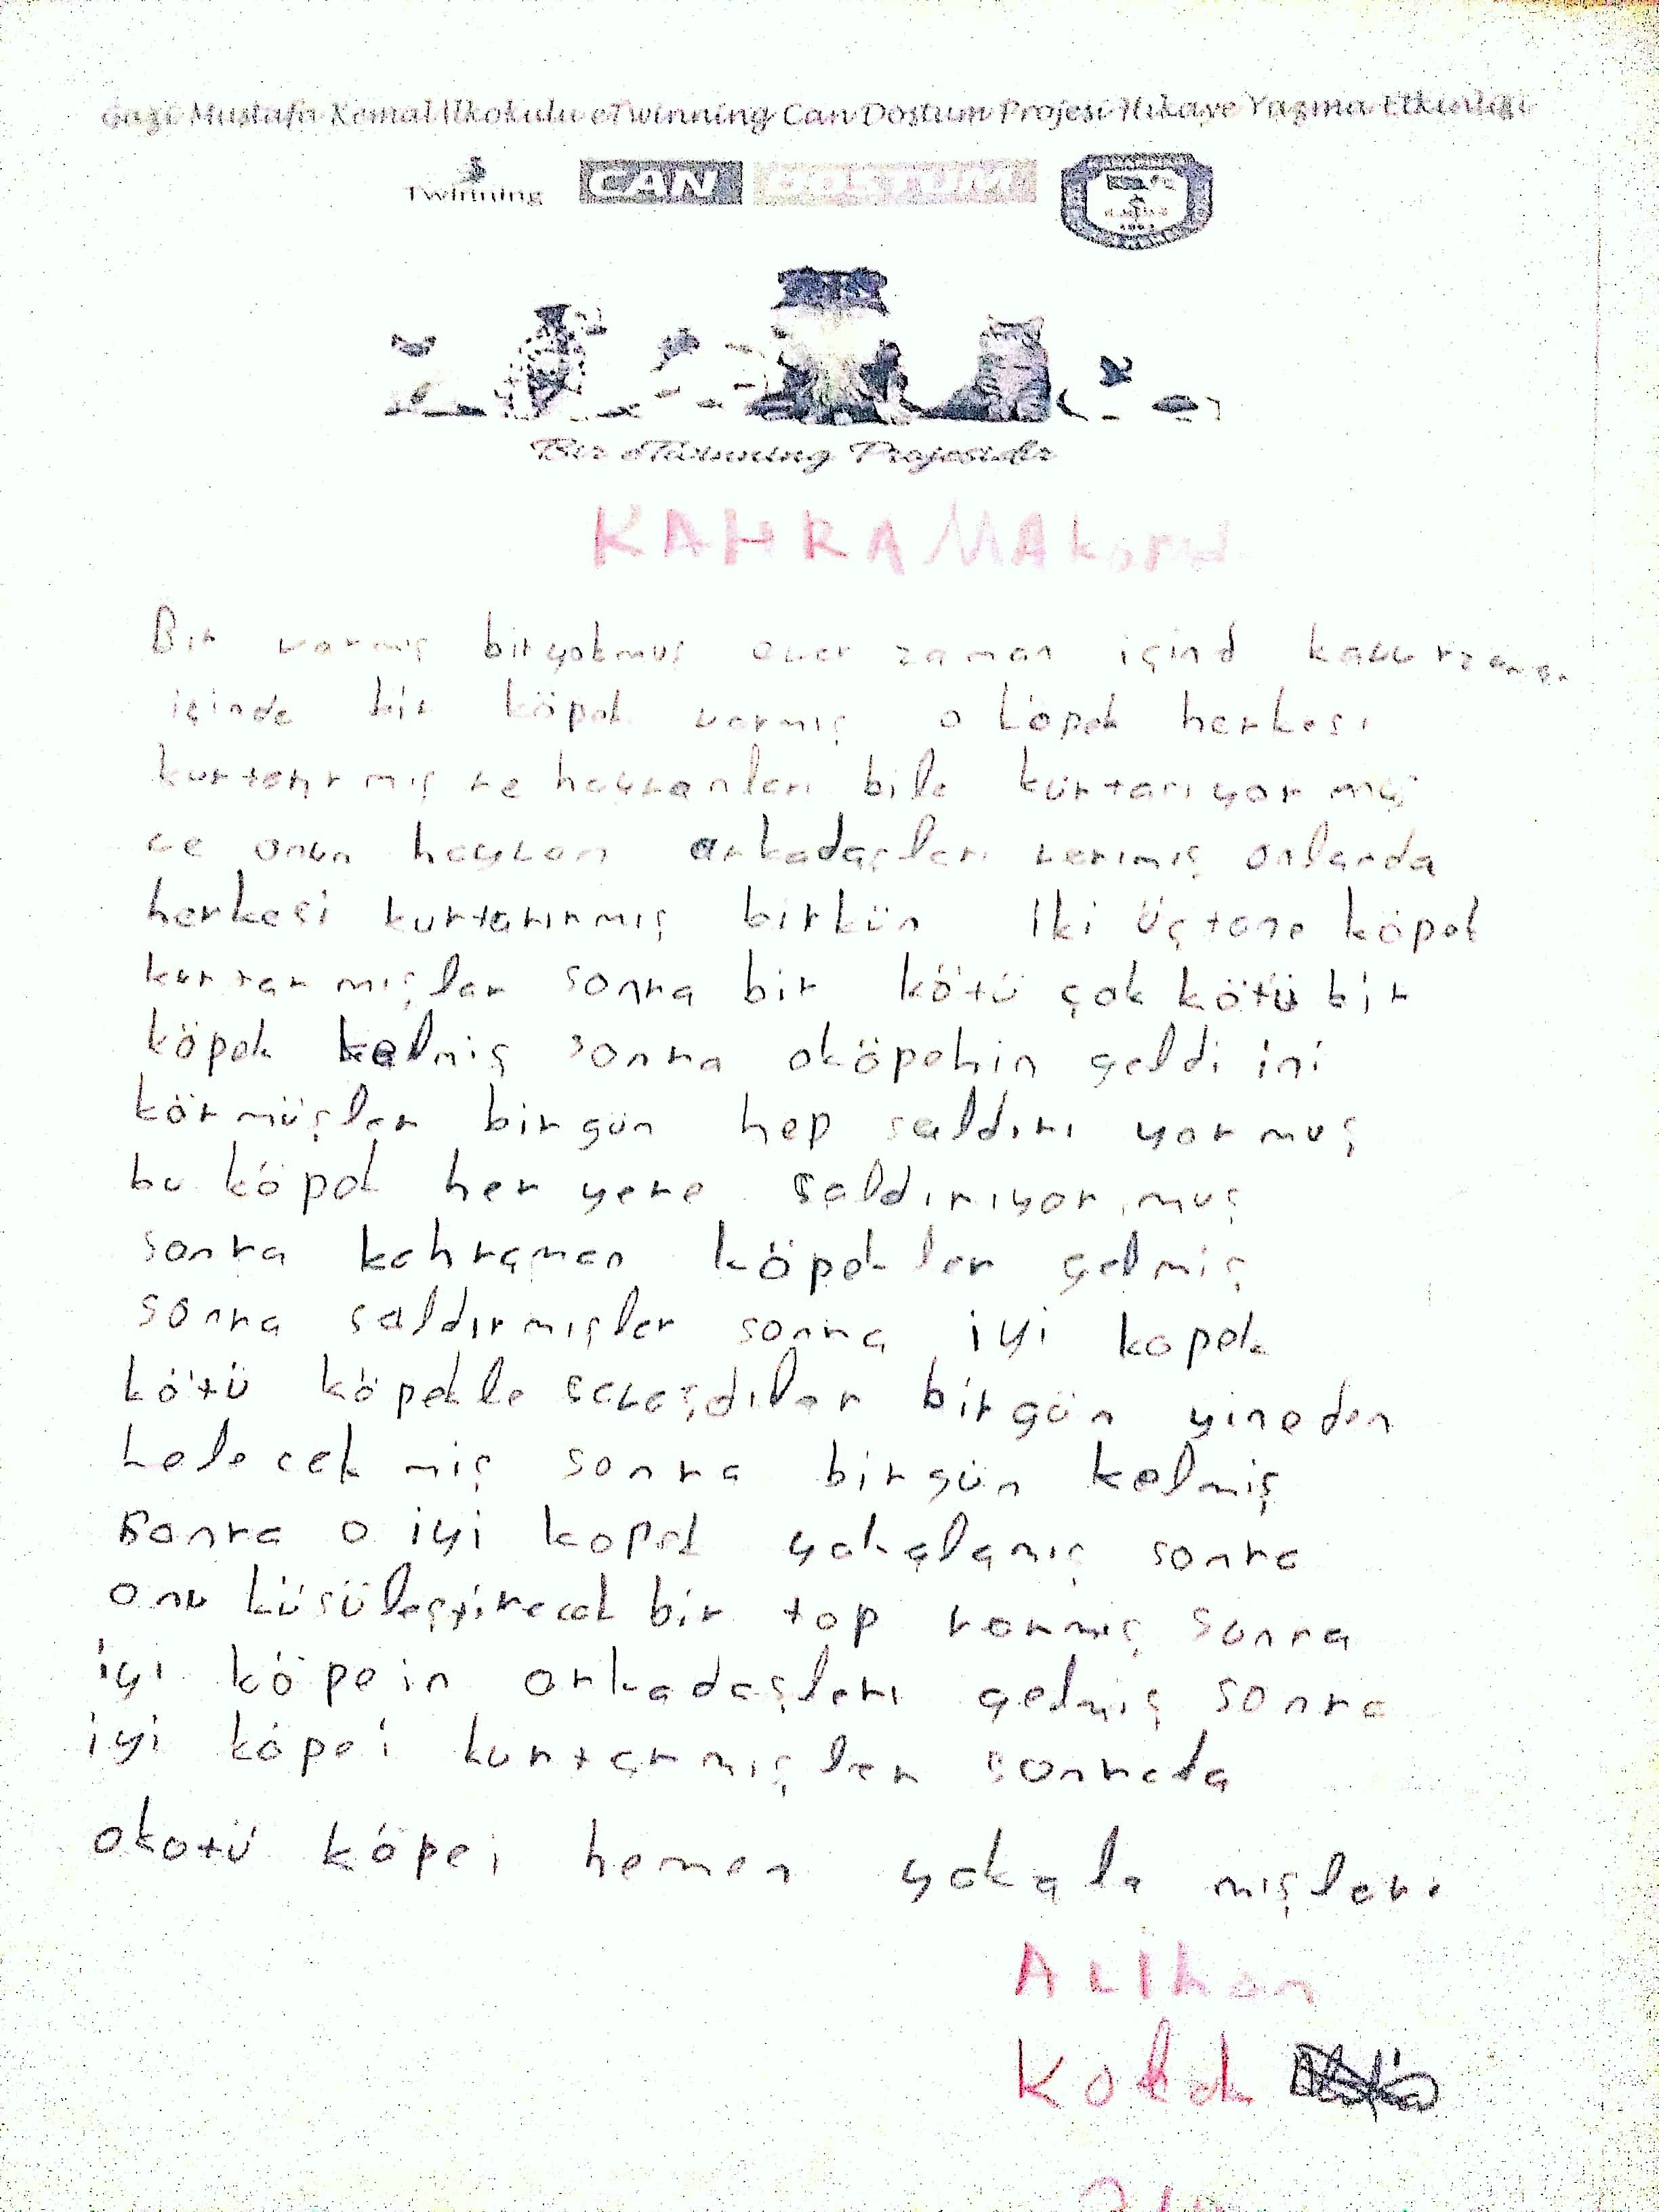 Gazi Mustafa Kemal İlkokulu eTwinning Can Dostum Projesi Hikaye Yazma Etkinliği
Twinning CAN DOSTUM
Bir eTwinning Projesidir
KAHRAMAkopek
Bir varmış biryokmuş evver zaman içind kavurzaman
içinde bir köpek varmış o köpek herkesi
kurtarırmış ve hayvanları bile kurtarıyormuş
ve onun hayvan arkadaşları varımış onlarda
herkesi kurtarırmış birkün iki üçtane köpek
kurtarmışlar sonra bir kötü çok kötü bir
köpek kelmiş sonra oköpekin geldi ini
körmüşler birgün hep saldırı yormuş
bu köpek her yere saldırıyormuş
sonra kahraman köpekler gelmiş
sonra saldırmışlar sonra iyi kopek
kötü köpekle savaşdılar birgün yineden
kelecekmiş sonra birgün kelmiş
sonra o iyi kopek yakalamış sonra
onu küsüleştirecek bir top varmış sonra
iyi köpein arkadaşları gelmiş sonra
iyi köpei kurtarmışlar sonrada
okotü köpei hemen yakala mışlar.
ALİhan
Kolak